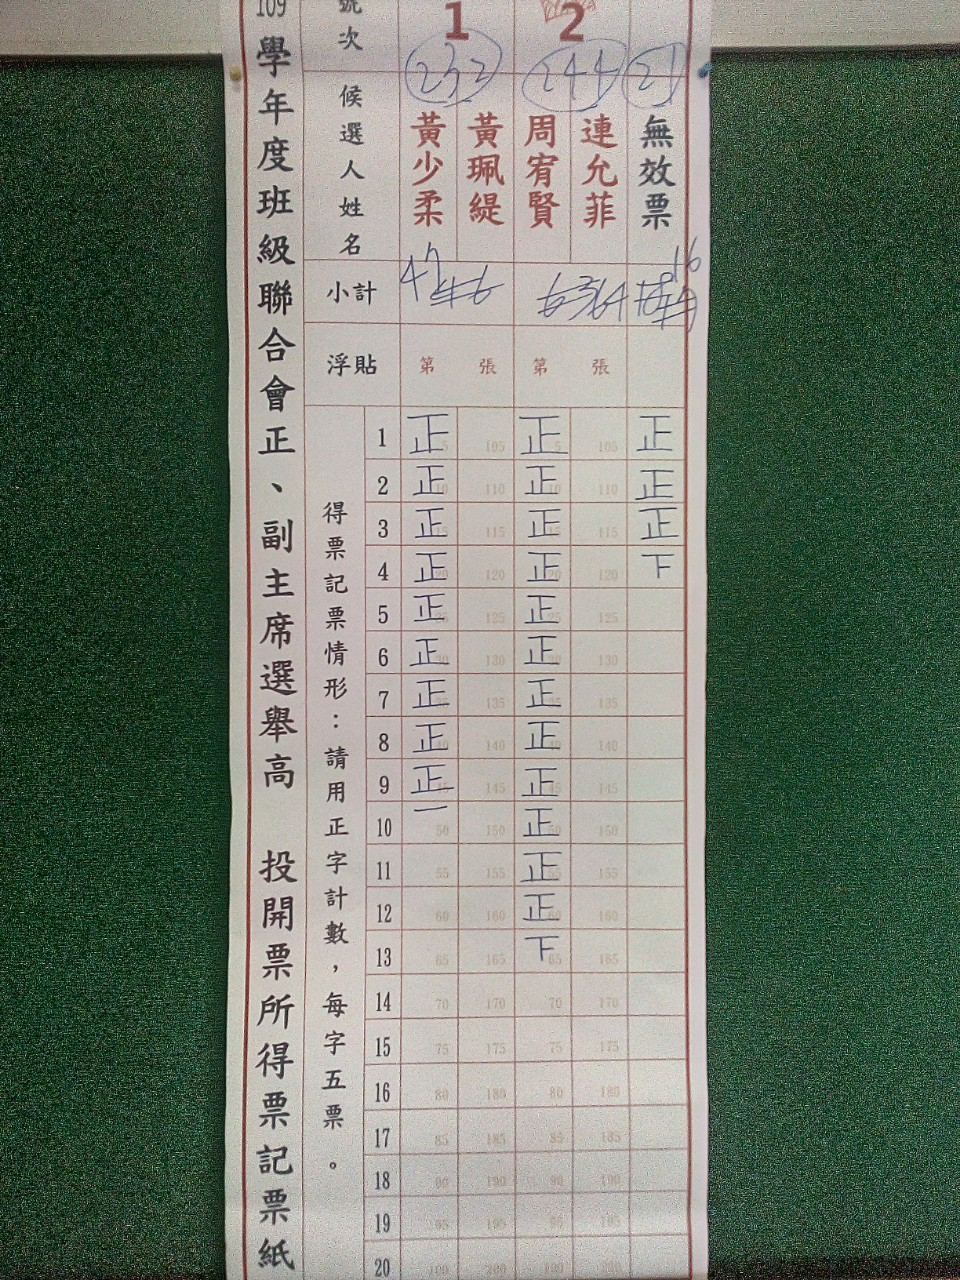 109學年度班級聯合會正、副主席選舉高 投開票所得票記票紙
號次 1 2
232 244 21
候選人姓名 黃少柔 黃珮緹 周宥賢 連允菲 無效票
小計 47 16
浮貼 第 張 第 張
得票記票情形：請用正字計數，每字五票。
1 正 5 105 正 5 105 正
2 正 10 110 正 10 110 正
3 正 15 115 正 15 115 正
4 正 20 120 正 20 120 下
5 正 25 125 正 25 125
6 正 30 130 正 30 130
7 正 35 135 正 35 135
8 正 40 140 正 40 140
9 正 45 145 正 45 145
10 一 50 150 正 50 150
11 55 155 正 55 155
12 60 160 正 60 160
13 65 165 下 65 165
14 70 170 70 170
15 75 175 75 175
16 80 180 80 180
17 85 185 85 185
18 90 190 90 190
19 95 195 95 195
20 100 200 100 200